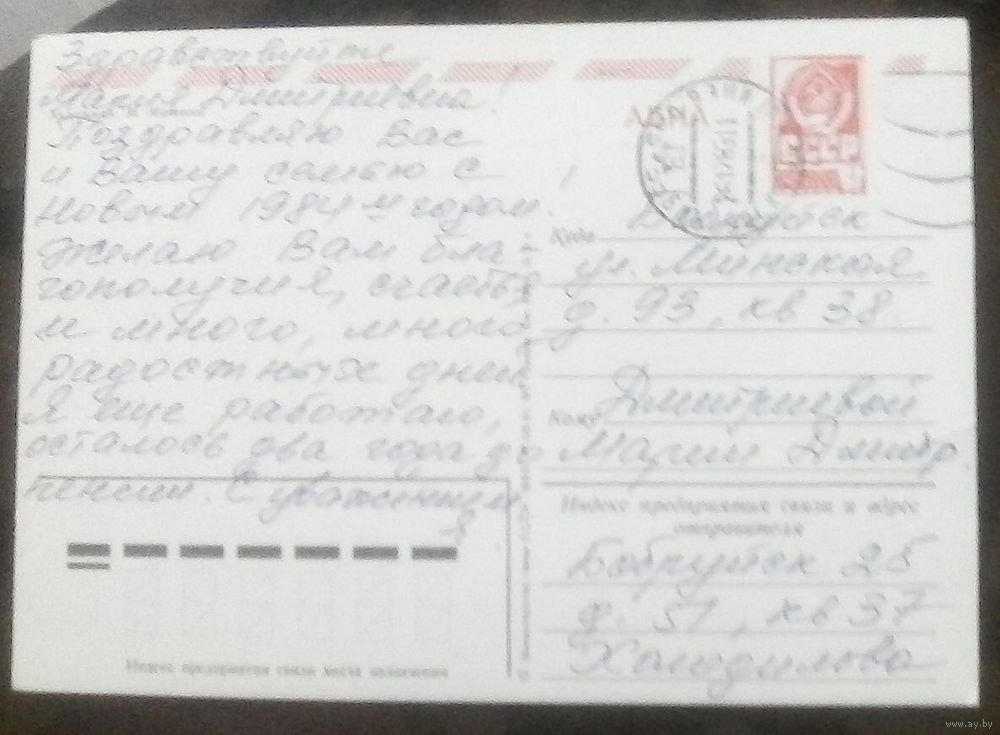 Здравствуйте
Мария Дмитриевна!
Поздравляю Вас
и Вашу семью с
Новым 1984м годом.
Желаю Вам бла-
гополучия, счастья
и много, много
радостных дней
Я еще работаю,
осталось два года до
пенсии. С уважением
АВИА
СССР
Куда
Бобруйск
ул. Минская
д. 93, кв 38.
Кому
Дмитриевой
Марии Дмитр.
Индекс предприятия связи и адрес
отправителя
Бобруйск 25
д. 51, кв 37
Индекс предприятия связи места назначения
www.ay.by